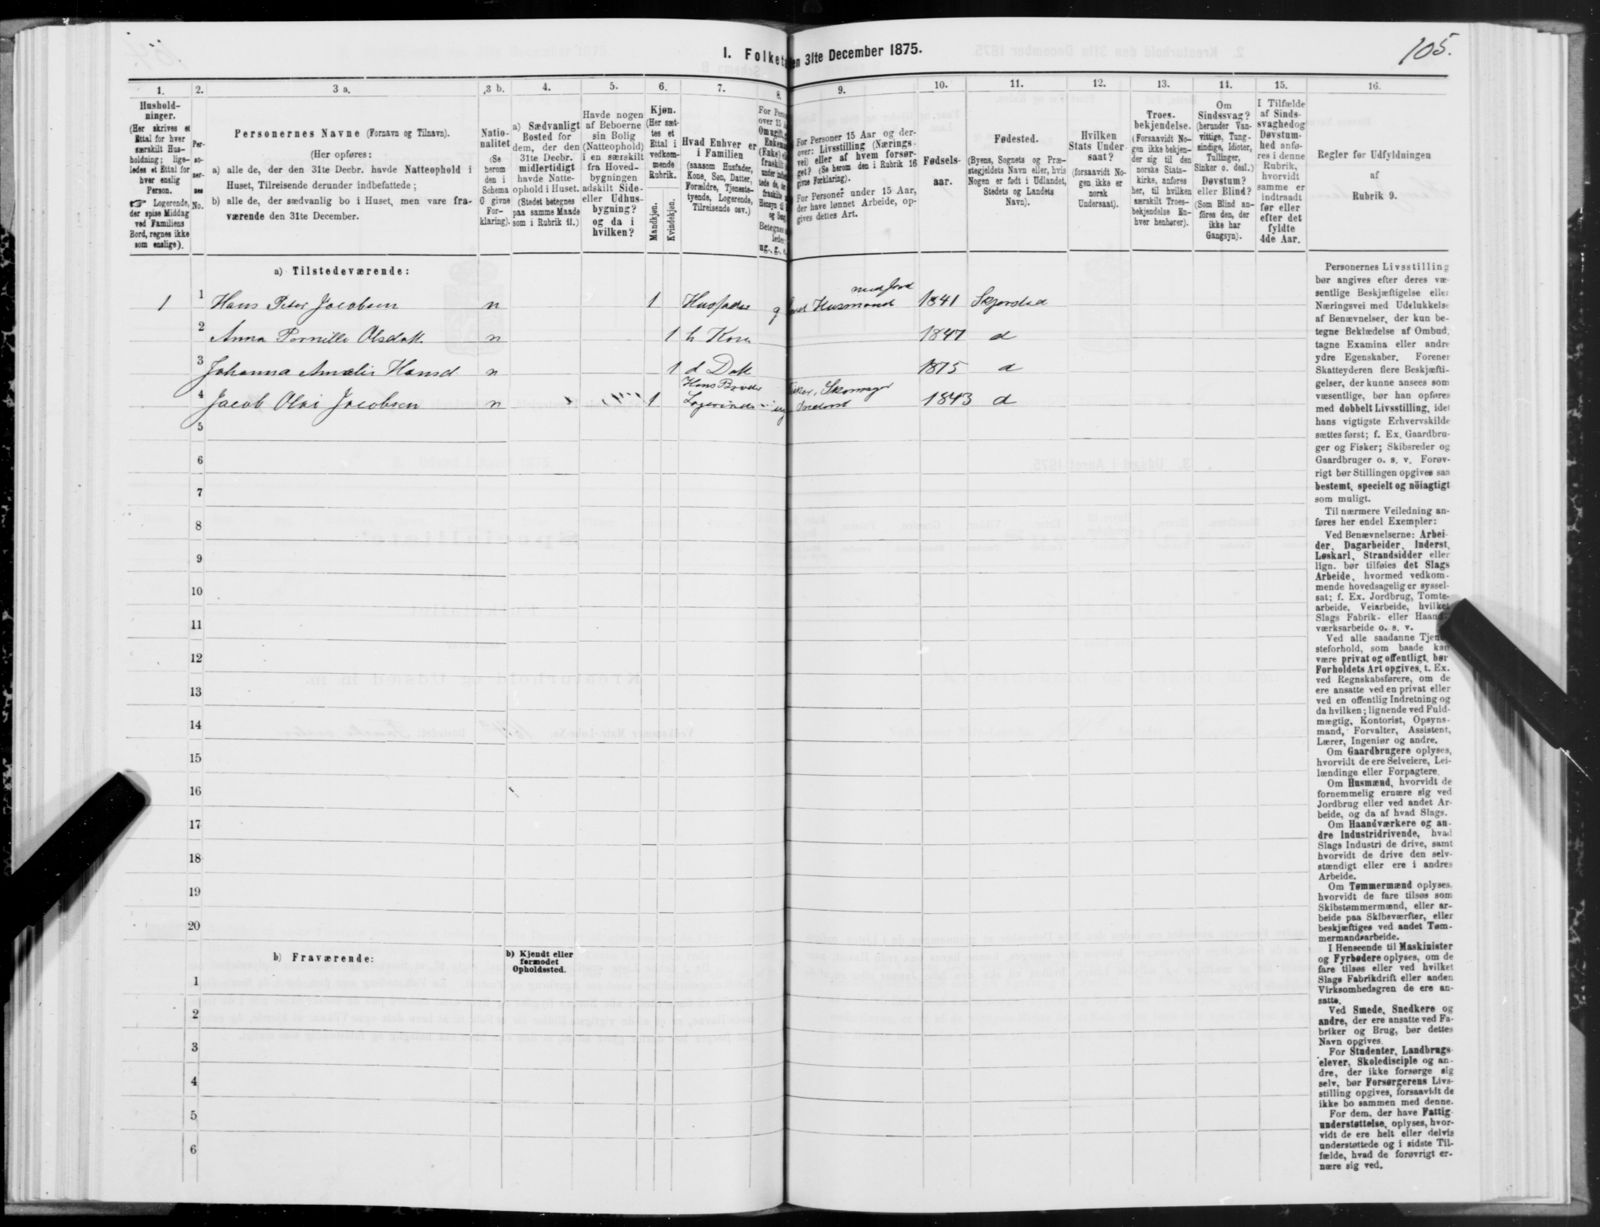 105.
I. Folketæ en 31te December 1875.
1. 2. 3 a. 3 b. 4. 5. 6. 7. 8. 9. 10. 11. 12. 13. 14. 15. 16.
Hushold-
ninger.
(Her skrives et
Ettal for hver
særskilt Hus-
holdning; lige-
ledes et Ettal for
hver enslig
Person.
☞ Logerende,
der spise Middag
ved Familiens
Bord, regnes ikke
som enslige).
Per-
so-
ner-
nes
No.
Personernes Navne (Fornavn og Tilnavn).
(Her opføres:
a) alle de, der den 31te Decbr. havde Natteophold i
Huset, Tilreisende derunder indbefattede;
b) alle de, der sædvanlig bo i Huset, men vare fra-
værende den 31te December.
Natio-
nalitet
(Se
herom
den i
Schema
G givne
For-
klaring).
a) Sædvanligt
Bosted for
dem, der den
31te Decbr.
midlertidigt
havde Natte-
ophold i Huset.
(Stedet betegnes
paa samme Maade
som i Rubrik 11.)
Havde nogen
af Beboerne
sin Bolig
(Natteophold)
i en særskilt
fra Hoved-
bygningen
adskilt Side-
eller Udhus-
bygning?
og da i
hvilken?
Kjøn.
(Her sæt-
tes et
Ettal i
vedkom-
mende
Rubrik.
Mandkjøn.
Kvindekjøn.
Hvad Enhver er
i Familien
(saasom Husfader,
Kone, Søn, Datter,
Forældre, Tjeneste-
tyende, Logerende,
Tilreisende osv.)
For Personer 15 Aar og der-
over: Livsstilling (Nærings-
vei) eller af hvem forsør-
get? (Se herom den i Rubrik 16
givne Forklaring).
For Personer under 15 Aar,
der have lønnet Arbeide, op-
gives dettes Art.
Fødsels-
aar.
Fødested.
(Byens, Sognets og Præ-
stegjeldets Navn eller, hvis
Nogen er født i Udlandet,
Stedets og Landets
Navn).
Hvilken
Stats Under-
saat?
(forsaavidt No-
gen ikke er
norsk
Undersaat).
Troes-
bekjendelse.
(Forsaavidt No-
gen ikke bekjen-
der sig til den
norske Stats-
kirke, anføres
her, til hvilken
særskilt Troes-
bekjendelse En-
hver henhører).
Om
Sindssvag?
(herunder Van-
vittige, Tung-
sindige, Idioter,
Tullinger,
Sinker o. desl.)
Døvstum?
eller Blind?
(Som Blind an-
føres den, der
ikke har
Gangsyn).
I Tilfælde
af Sinds-
svaghed og
Døvstum-
hed anfø-
res i denne
Rubrik,
hvorvidt
samme er
indtraadt
før eller
efter det
fyldte
4de Aar.
Regler for Udfyldningen
af
Rubrik 9.
a) Tilstedeværende:
1 1 Hans Peter Jacobsen n 1 Husfader g Husmand 1841 Skjerstad
2 Anna Pernille Olsdatt. n 1 h Kone 1847 d
3 Johanna Amalie Hansd n 1 d Datt 1875 d
4 Jacob Olai Jacobsen n 1 Hans Broder Skomager 1843 d
5
6
7
8
9
10
11
12
13
14
15
16
17
18
19
20
b) Fraværende:
b) Kjendt eller
formodet
Opholdssted.
1
2
3
4
5
6
Personernes Livsstilling
bør angives efter deres væ-
sentlige Beskjæftigelse eller
Næringsvei med Udelukkelse
af Benævnelser, der kun be-
tegne Beklædelse af Ombud,
tagne Examina eller andre
ydre Egenskaber. Forener
Skatteyderen flere Beskjæfti-
gelser, der kunne ansees som
væsentlige, bør han opføres
med dobbelt Livsstilling, idet
hans vigtigste Erhvervskilde
sættes først; f. Ex. Gaardbru-
ger og Fisker; Skibsreder og
Gaardbruger o. s. v. Forøv-
rigt bør Stillingen opgives saa
bestemt, specielt og nöiagtigt
som muligt.
Til nærmere Veiledning an-
føres her endel Exempler:
Ved Benævnelserne: Arbei-
der, Dagarbeider, Inderst,
Løskarl, Strandsidder eller
lign. bør tilføies det Slags
Arbeide, hvormed vedkom-
mende hovedsagelig er syssel-
sat; f. Ex. Jordbrug, Tomte-
arbeide, Veiarbeide, hvilket
Slags Fabrik- eller Haand-
værksarbeide o. s. v.
Ved alle saadanne Tjene-
steforhold, som baade kan
være privat og offentligt, bør
Forholdets Art opgives, t. Ex.
ved Regnskabsførere, om de
ere ansatte ved en privat eller
ved en offentlig Indretning og
da hvilken; lignende ved Fuld-
mægtig, Kontorist, Opsyns-
mand, Forvalter, Assistent,
Lærer, Ingeniør og andre.
Om Gaardbrugere oplyses,
hvorvidt de ere Selveiere, Lei-
lændinge eller Forpagtere.
Om Husmænd, hvorvidt de
fornemmelig ernære sig ved
Jordbrug eller ved andet Ar-
beide, og da af hvad Slags.
Om Haandværkere og an-
dre Industridrivende, hvad
Slags Industri de drive, samt
hvorvidt de drive den selv-
stændigt eller ere i andres
Arbeide.
Om Tømmermænd oplyses,
hvorvidt de fare tilsøs som
Skibstømmermænd, eller ar-
beide paa Skibsværfter, eller
beskjæftiges ved andet Tøm-
mermandsarbeide.
I Henseende til Maskinister
og Fyrbødere oplyses, om de
fare tilsøs eller ved hvilket
Slags Fabrikdrift eller anden
Virksomhedsgren de ere an-
satte.
Ved Smede, Snedkere og
andre, der ere ansatte ved Fa-
briker og Brug, bør dettes
Navn opgives.
For Studenter, Landbrugs-
elever, Skoledisciple og an-
dre, der ikke forsørge sig
selv, bør Forsørgerens Livs-
stilling opgives, forsaavidt de
ikke bo sammen med denne.
For dem, der have Fattig-
understøttelse, oplyses, hvor-
vidt de ere helt eller delvis
understøttede og i sidste Til-
fælde, hvad de forøvrigt er-
nære sig ved.